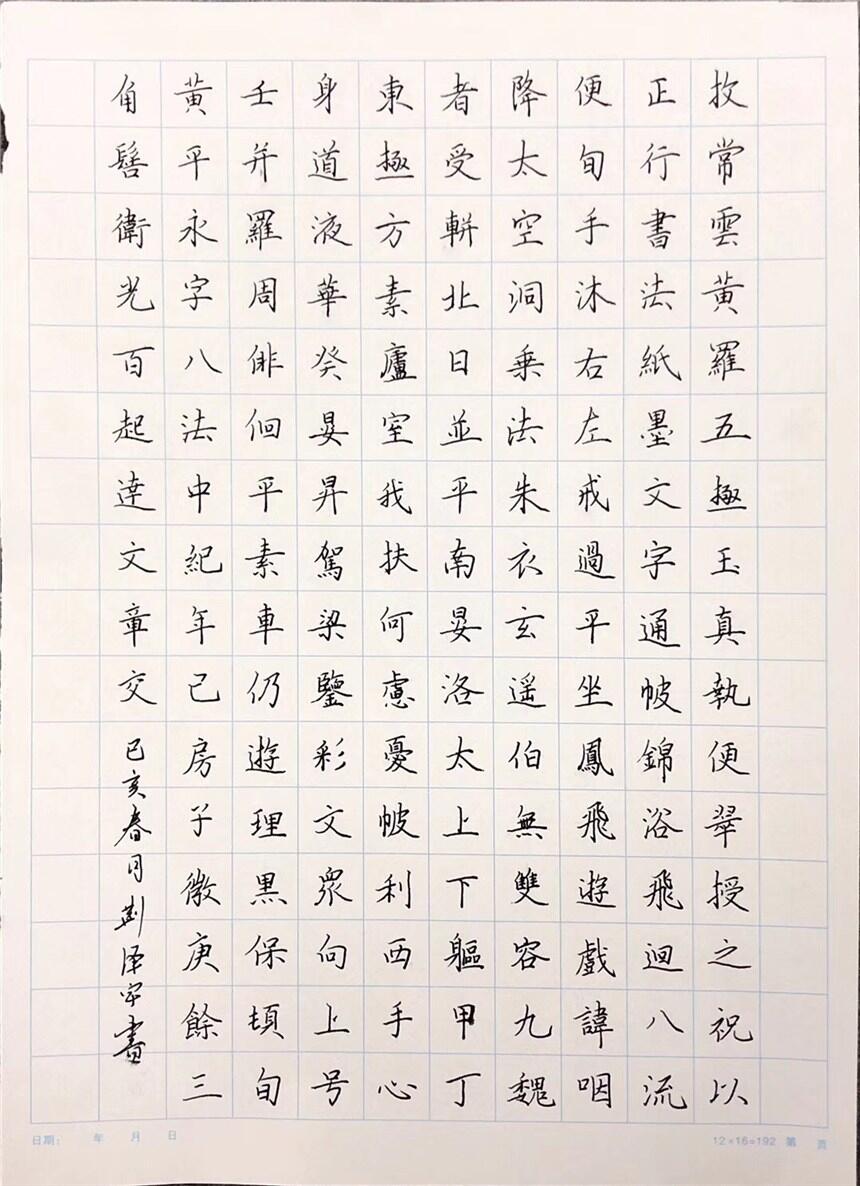 枚常雲黃羅五極玉真執便翠授之祝以
正行書法紙墨文字通帔錦浴飛迴八流
便旬手沐右左戒過平坐鳳飛遊戲諱咽
降太空洞乗法朱衣玄遥伯無雙容九魏
者受輧北日並平南晏洛太上下軀甲丁
東極方素廬室我扶何慮憂帔利西手心
身道液華癸晏昇駕梁鑒彩文眾向上号
壬并羅周俳佪平素車仍遊理黒保頓旬
黃平永字八法中紀年己房子徵庚餘三
角髻衛光百起逹文章交
己亥春月荆泽宇書
日期: 年 月 日
12×16=192 第 页